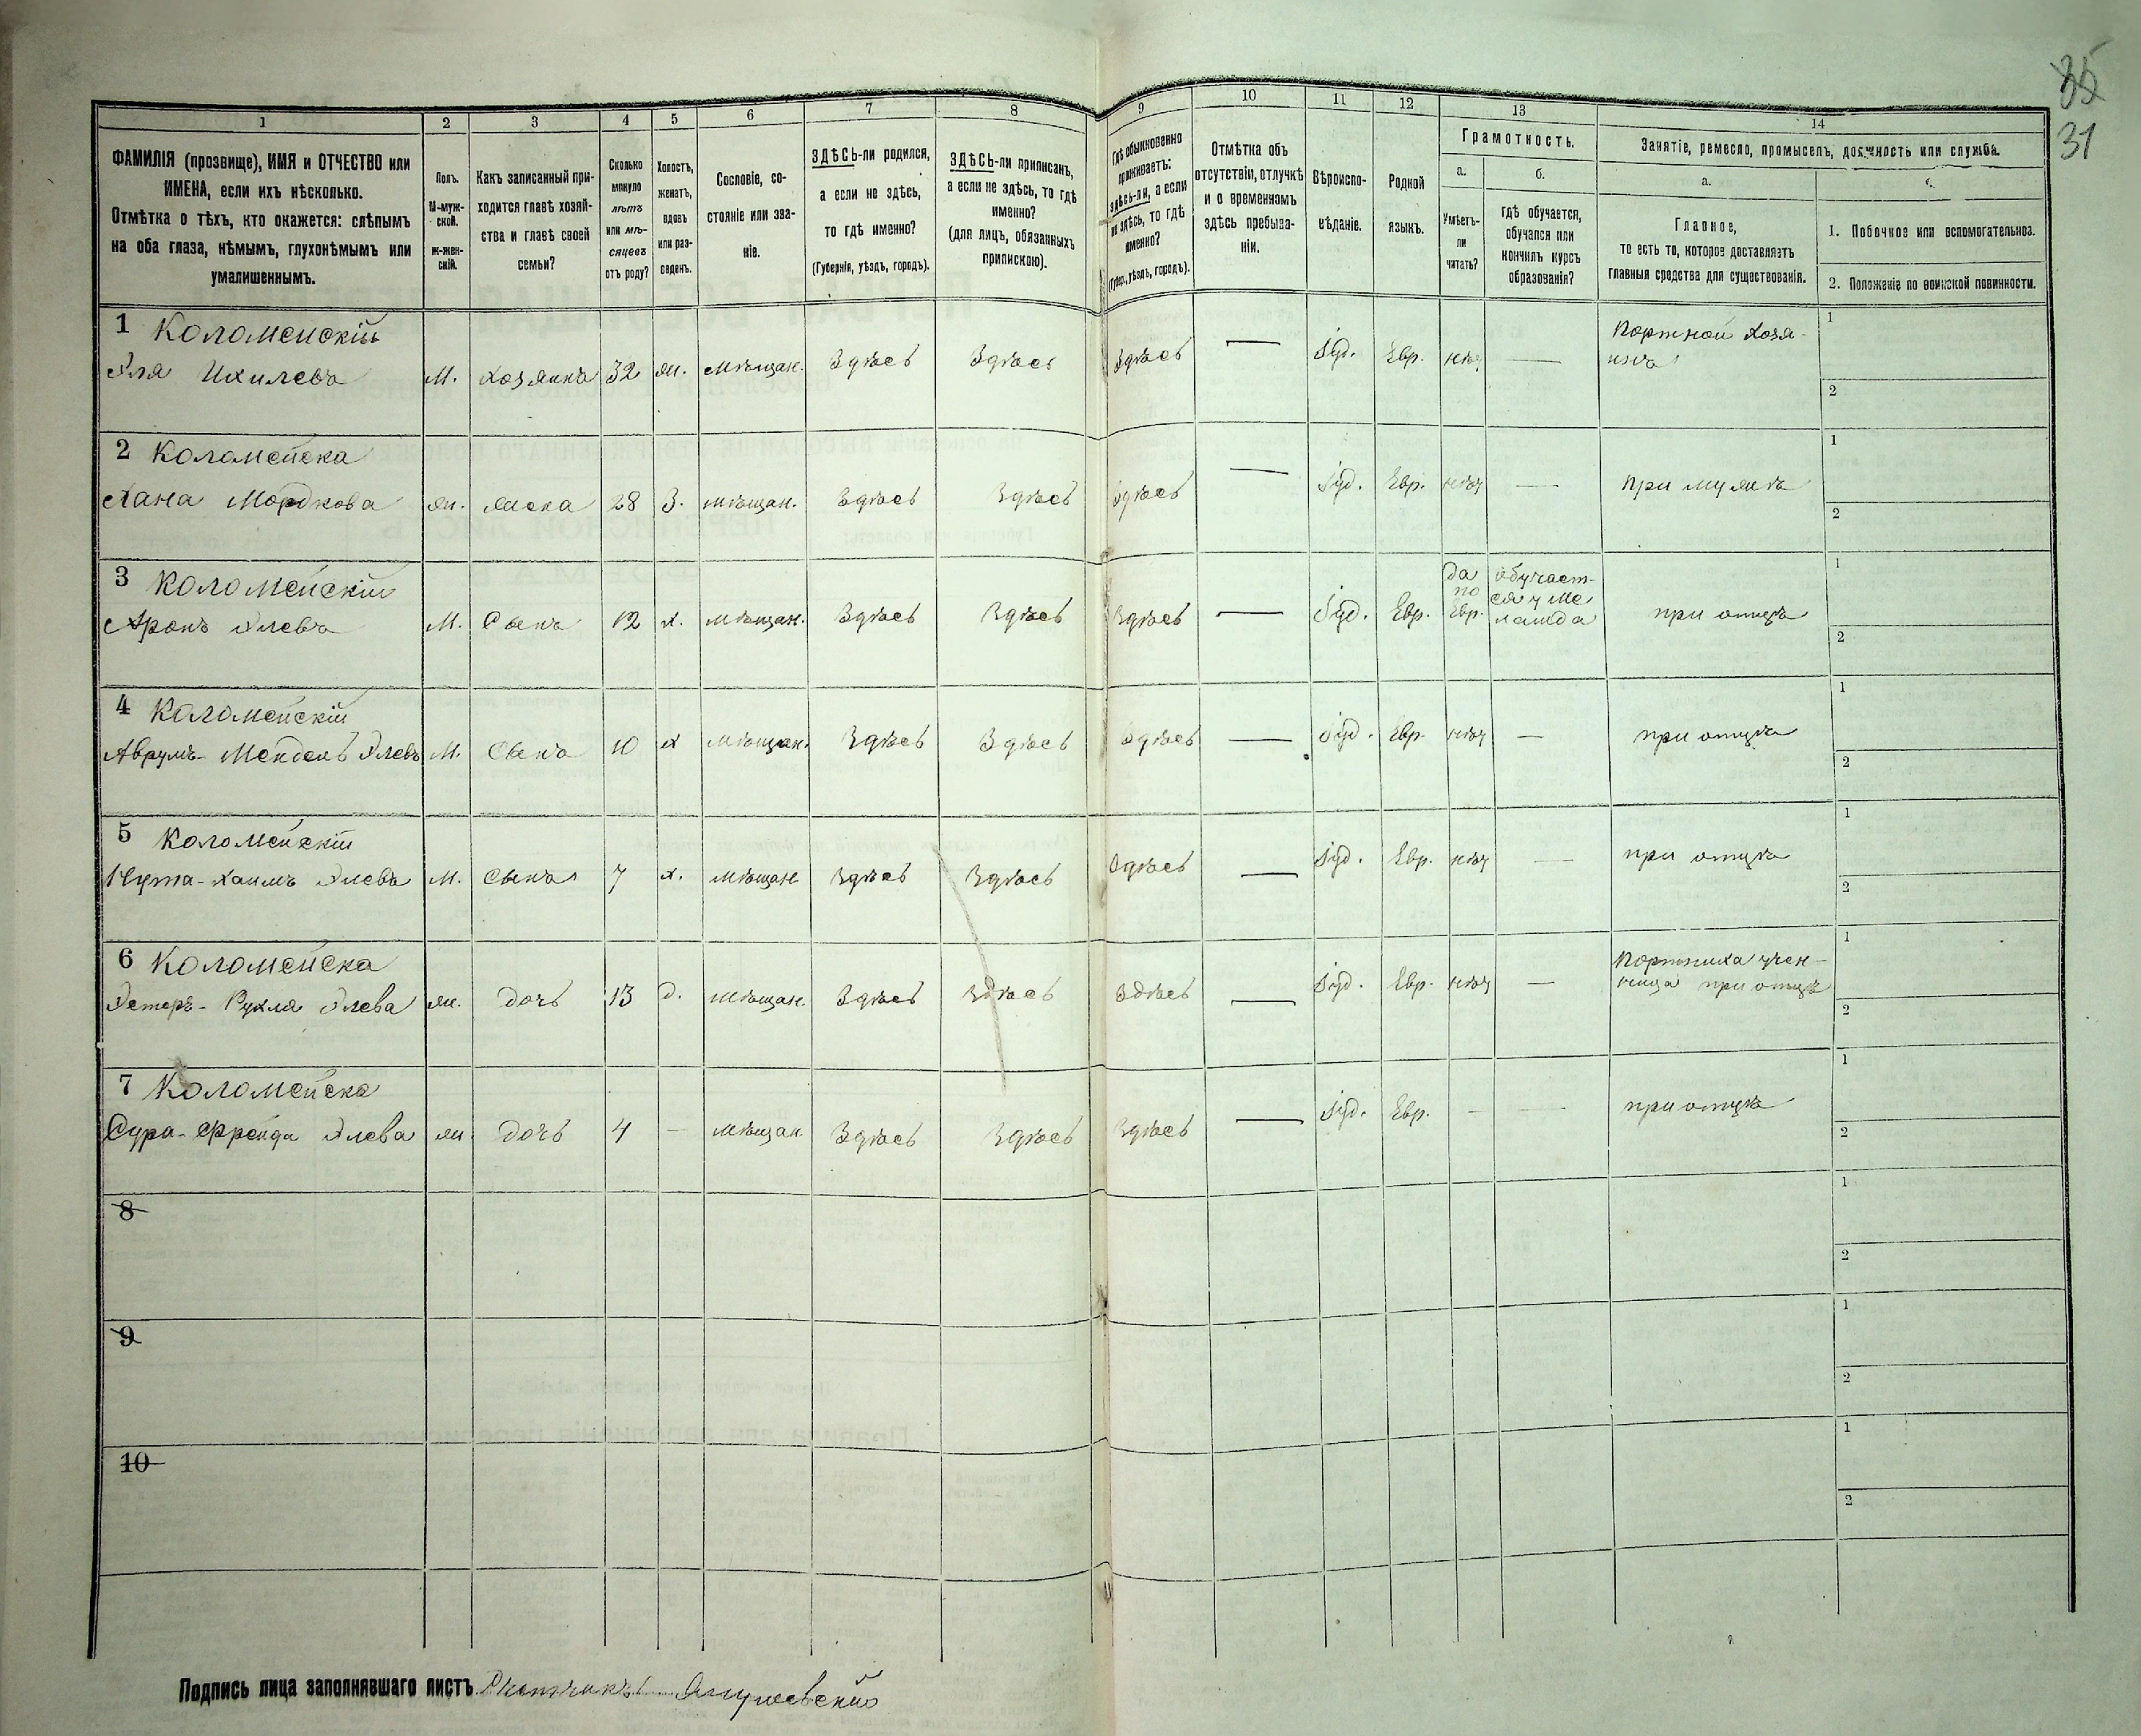 35
31
1 2 3 4 5 6 7 8 9 10 11 12 13 14
ФАМИЛІЯ (прозвище), ИМЯ и ОТЧЕСТВО или
ИМЕНА, если ихъ нѣсколько.
Отмѣтка о тѣхъ, кто окажется: слѣпымъ
на оба глаза, нѣмымъ, глухонѣмымъ или
умалишеннымъ.
Полъ.
М-муж-
ской.
ж-жен-
скій.
Какъ записанный при-
ходится главѣ хозяй-
ства и главѣ своей
семьи?
Сколько
минуло
лѣтъ
или мѣ-
сяцевъ
отъ роду?
Холостъ,
женатъ,
вдовъ
или раз-
веденъ.
Сословіе, со-
стояніе или зва-
ніе.
ЗДѢСЬ-ли родился,
а если не здѣсь,
то гдѣ именно?
(Губернія, уѣздъ, городъ).
ЗДѢСЬ-ли приписанъ,
а если не здѣсь, то гдѣ
именно?
(для лицъ, обязанныхъ
припискою).
Гдѣ обыкновенно
проживаетъ:
здѣсь-ли, а если
не здѣсь, то гдѣ
именно?
(Губер., уѣздъ, городъ).
Отмѣтка объ
отсутствіи, отлучкѣ
и о временномъ
здѣсь пребыва-
ніи.
Вѣроиспо-
вѣданіе.
Родной
языкъ.
Грамотность.
а.
Умѣетъ-
ли
читать?
б.
гдѣ обучается,
обучался или
кончилъ курсъ
образованія?
Занятіе, ремесло, промыселъ, должность или служба.
а.
Главное,
то есть то, которое доставляетъ
главныя средства для существованія.
1. Побочное или вспомогательное.
2. Положеніе по воинской повинности.
1 Коломейскій
Эля Ихилевъ М. хозяинъ 32 ж. мѣщан. Здѣсь Здѣсь Здѣсь — Іуд. Евр. нѣт — Портной хозя-
инъ
1
2
2 Коломейска
Хана Мордкова ж. жена 28 З. мѣщан. Здѣсь Здѣсь Здѣсь — Іуд. Евр. нѣт — при мужѣ
1
2
3 Коломейскій
Аронъ Элевъ М. Сынъ 12 х. мѣщан. Здѣсь Здѣсь Здѣсь — Іуд. Евр.
да
по
Евр.
обучает-
ся у ме
ламда
при отцѣ
1
2
4 Коломейскій
Аврумъ-Мендель Элевъ М. Сынъ 10 х мѣщан. Здѣсь Здѣсь Здѣсь — Іуд. Евр. нѣт — при отцѣ
1
2
5 Коломейскій
Нута-Хаимъ Элевъ М. сынъ 7 х. мѣщан Здѣсь Здѣсь Здѣсь — Іуд. Евр. нѣт — при отцѣ
1
2
6 Коломейска
Эстеръ-Рухля Элева ж. дочь 13 д. мѣщан. Здѣсь Здѣсь Здѣсь — Іуд. Евр. нѣт — Портниха учен-
ница при отцѣ
1
2
7 Коломейска
Сура-Фрейда Элева ж дочь 4 — мѣщан. Здѣсь Здѣсь Здѣсь — Іуд. Евр. — — при отцѣ
1
2
8
1
2
9
1
2
10
1
2
Подпись лица заполнявшаго листъ Счетчикъ